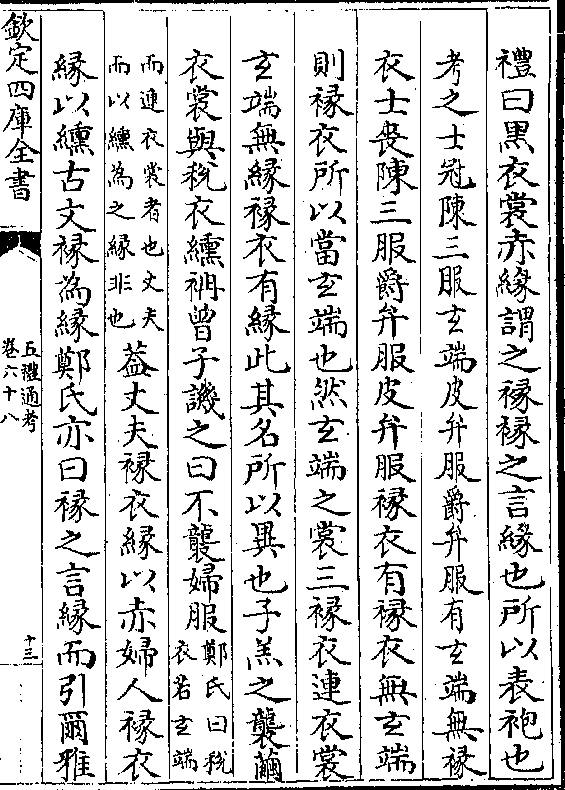 禮曰黒衣裳赤緣謂之褖褖之言緣也所以表袍也
考之士冠陳三服玄端皮弁服爵弁服有玄端無褖
衣士喪陳三服爵弁服皮弁服褖衣有褖衣無玄端
則褖衣所以當玄端也然玄端之裳三褖衣連衣裳
玄端無緣褖衣有緣此其名所以異也子羔之襲繭
衣裳與稅衣纁袡曽子譏之曰不襲婦服
鄭氏曰稅
衣若玄端
而連衣裳者也丈夫
而以纁為之緣非也
葢丈夫褖衣緣以赤婦人褖衣
緣以纁古文褖為緣鄭氏亦曰褖之言緣而引爾雅
欽定四庫全書
五禮通考
卷六十八
十三